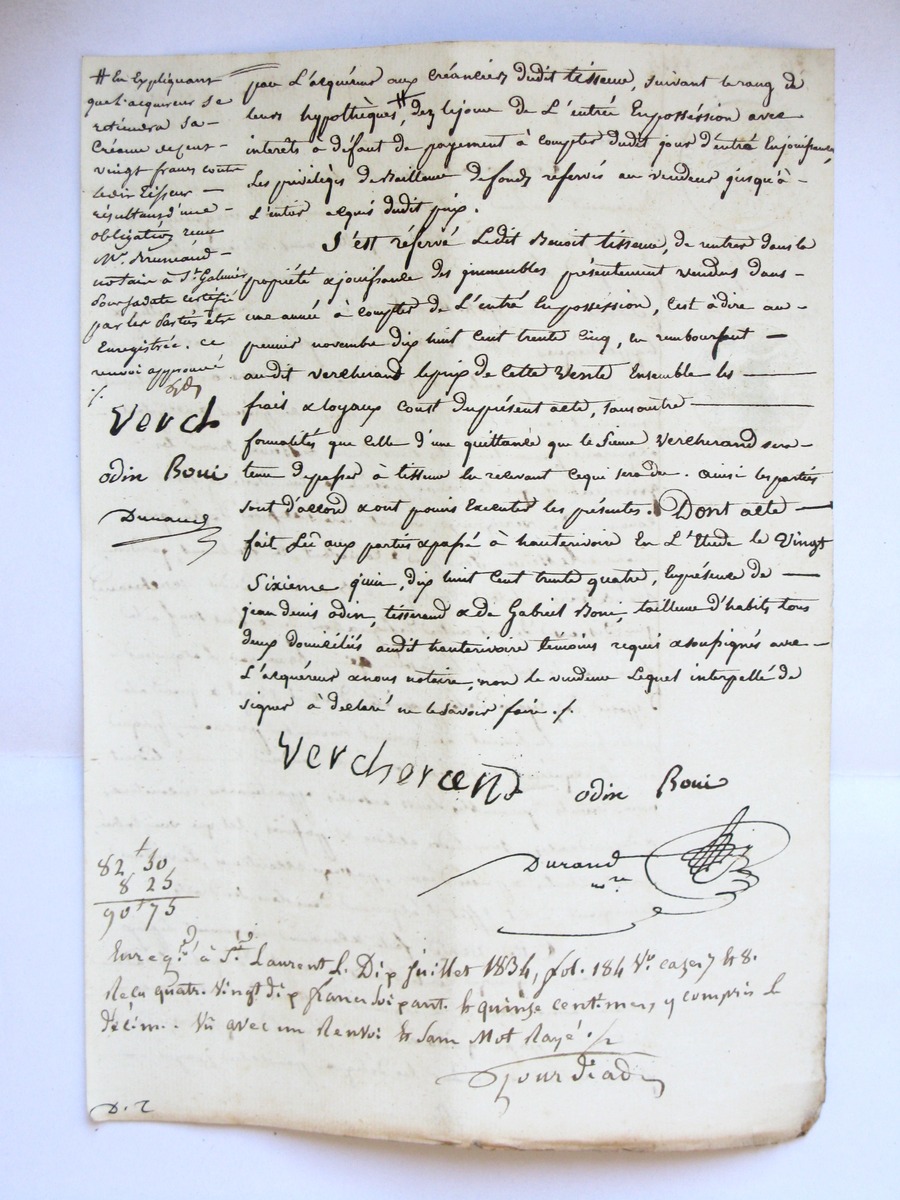 # En Expliquant
que l'acquereur se
retiendra sa
Créance de cent
vingt francs contre
ledit Tisseur
résultant d'une
obligation reçue
Me.
notaire à St. Galmier
Pour sa date certifié
par les Parties être
Enregistrée. ce
renvoi approuvé
./.
Verch
odin Boui
Durand
par L'acquéreur aux Créanciers dudit tisseur, suivant le rang de
leurs hypothèques,# dez le jour de L'entrée En posséssion avec
interêts à défaut de payement à compter dudit jour d'entrée En jouissance
Les privilégés de Bailleur de fonds réservés au vendeur jusqu'à
L'entier acquit dudit prix.
S'est réservé Ledit Benoit tisseur, de rentrer dans la
propriété & jouissance des immeubles présentement vendus dans
une année à compter de L'entré En posséssion, C'est à dire au
premier novembre dix huit Cent trente Cinq, en remboursant
audit vercherand le prix de Cette Vente Ensemble les
frais & loyaux Cout du présent acte, sans autre
formalités que Celle d'une quittance que le Sieur Vercherand sera
tenu de passer à tisseur En relevant Ce qui sera dû. ainsi les parties
sont d'accord & ont promis Executer les présentes. Dont acte
fait Lû aux parties & passé à hauterivoire En L'Etude le Vingt
Sixieme juin, dix huit Cent trente quatre, En présence de
jean denis odin, tisserand & de Gabriel Boui, tailleur d'habits tous
deux domiciliés audit hauterivoire témoins requis & soussignés avec
L'acquéreur & nous notaire, non le vendeur Lequel interpellé de
signer à déclaré ne le savoir faire ./.
Vercherand odin Boui
Durand
nre
82 f 50
8 25
90 f 75
Enregré à St. Laurent le Dix juillet 1834, fol. 184 Vo. cases 7 & 8.
Reçu quatre vingt dix francs soixante & quinze centimes, y compris le
décime. Vû avec un Renvoi & Sans Mot Rayé ./.
D. 2